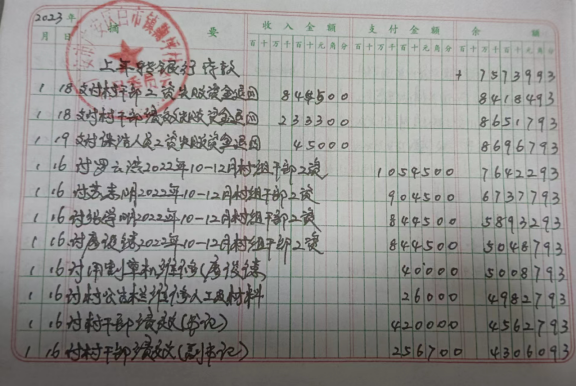 2023年
月 日 摘 要 收入金额 支付金额 余 额
百十万千百十元角分 百十万千百十元角分 百十万千百十元角分
上年转银行存款 7573993
1 18 支付村干部工资失败资金退回 844500 8418493
1 18 支付村干部绩效失败资金退回 233300 8651793
1 19 支付保洁人员工资失败资金退回 45000 8696793
1 16 付罗云洪2022年10-12月村组干部工资 1054500 7642293
1 16 付 明2022年10-12月村组干部工资 904500 6737793
1 16 付 明2022年10-12月村组干部工资 844500 5893293
1 16 付 2022年10-12月村组干部工资 844500 5048793
1 16 付 割草机维修( ) 40000 5008793
1 16 付村公告栏维修人工及材料 26000 4982793
1 16 付村干部绩效(书记) 420000 4562793
1 16 付村干部绩效(副书记) 256700 4306093